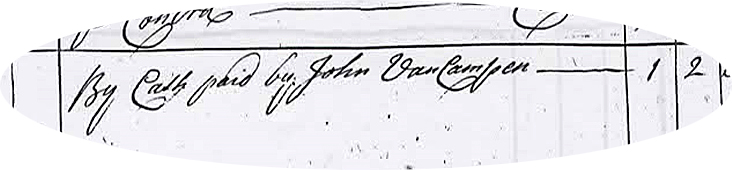 By Cash paid by John VanCampen — 1 2